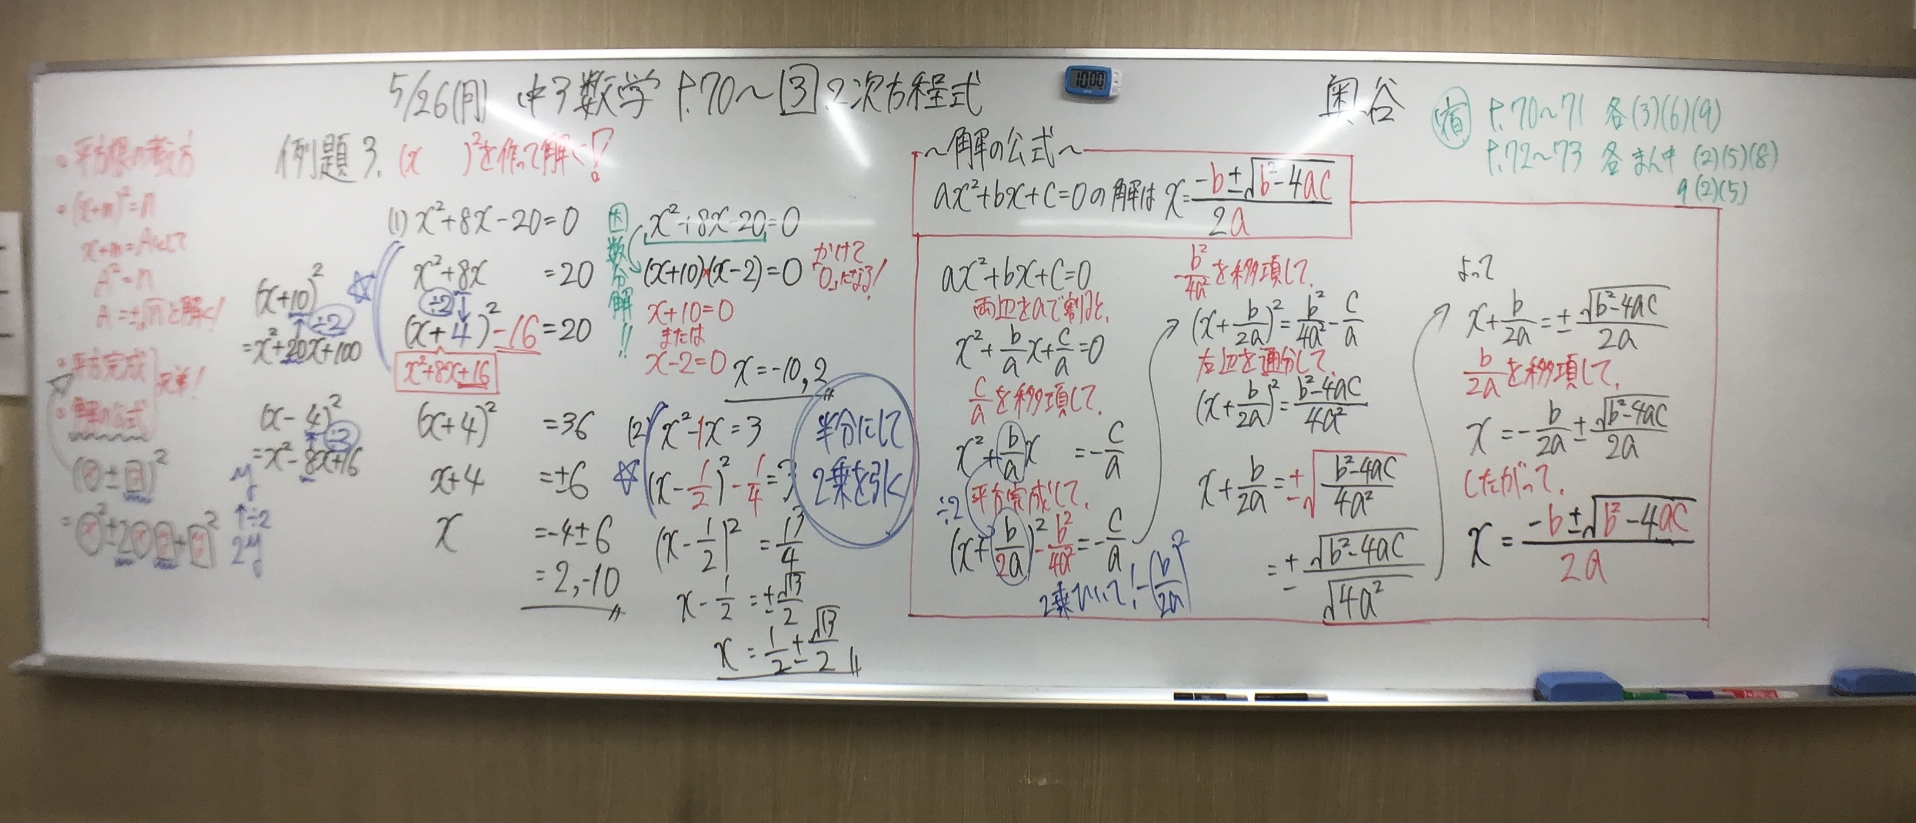 5/26(月) 中3数学 P.70～3 2次方程式
奥谷
宿 P.70～71 各(3)(6)(9)
P.72～73 各まん中 (2)(5)(8)
9(2)(5)
10:00
・平方根の考え方
・(x+m)²=n
x+m=Aとして
A²=n
A=±√nと解く!
・平方完成
・解の公式
兄弟!
(x±y)²
=x²±2xy+y²
y
↑÷2
2y
例題3. (x )²を作って解く!
(x+10)²
÷2
=x²+20x+100
(x-4)²
÷2
=x²-8x+16
(1) x²+8x-20=0
x²+8x =20
÷2
(x+4)²-16=20
x²+8x+16
(x+4)² =36
x+4 =±6
x =-4±6
=2,-10
因数分解!!
x²+8x-20=0
(x+10)×(x-2)=0
かけて「0」になる!
x+10=0
または
x-2=0
x=-10,2
(2) x²-1x=3
(x-1/2)²-1/4=3
(x-1/2)²=13/4
x-1/2=±√13/2
x=1/2±√13/2
半分にして
2乗を引く
～解の公式～
ax²+bx+c=0の解は x=(-b±√(b²-4ac))/2a
ax²+bx+c=0
両辺をaで割ると、
x²+b/a x+c/a=0
c/aを移項して、
x²+b/a x =-c/a
平方完成して、
÷2
(x+b/2a)²-b²/4a²=-c/a
2乗ひいて! -(b/2a)²
-b²/4a²を移項して、
(x+b/2a)²=b²/4a²-c/a
左辺を通分して、
(x+b/2a)²=(b²-4ac)/4a²
x+b/2a=±√((b²-4ac)/4a²)
=±√(b²-4ac)/√(4a²)
よって
x+b/2a=±√(b²-4ac)/2a
b/2aを移項して、
x=-b/2a±√(b²-4ac)/2a
したがって、
x=(-b±√(b²-4ac))/2a